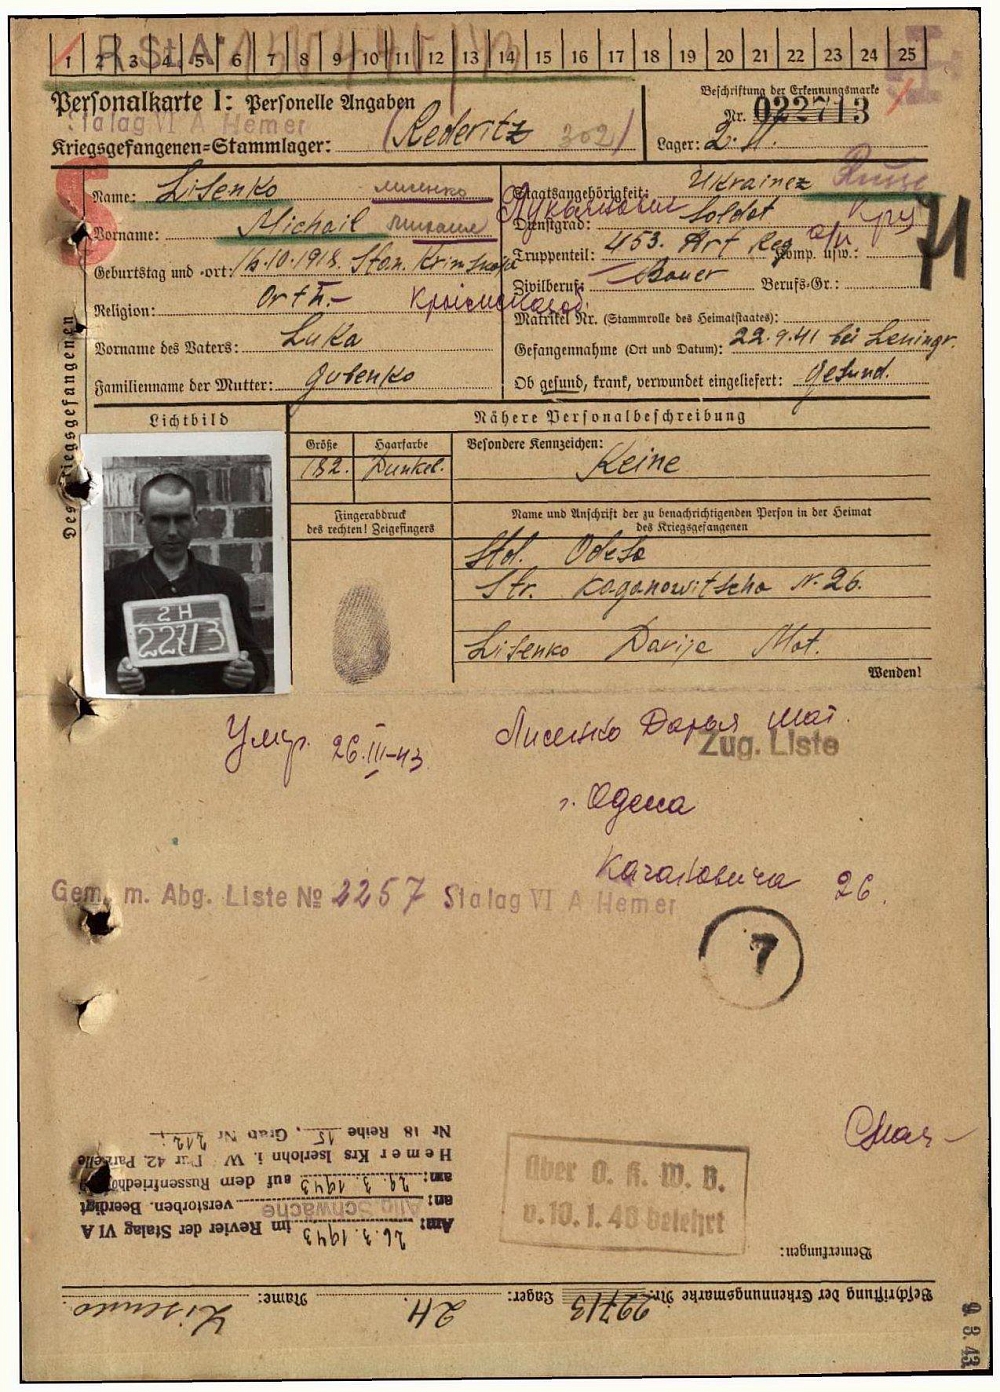 R. St. A.
1 2 3 4 5 6 7 8 9 10 11 12 13 14 15 16 17 18 19 20 21 22 23 24 25
Personalkarte I: Personelle Angaben
Beschriftung der Erkennungsmarke
Stalag VI A Hemer
Nr. 022713
Kriegsgefangenen-Stammlager: (Rederitz 302)
Lager: 2. H.
S
Des Kriegsgefangenen
Name: Lisenko
Staatsangehörigkeit: Ukrainez Russe
Vorname: Michail
Dienstgrad: Soldat
71
Geburtstag und -ort: 16.10.1918. Stan. Krimskaja
Truppenteil: 453. Art Reg Komp. usw.:
Zivilberuf: Bauer Berufs-Gr.:
Religion: Orth.-
Matrikel Nr. (Stammrolle des Heimatstaates):
Vorname des Vaters: Luka
Gefangennahme (Ort und Datum): 22.9.41 bei Leningr.
Familienname der Mutter: Gubenko
Ob gesund, krank, verwundet eingeliefert: Gesund.
Lichtbild
Nähere Personalbeschreibung
Größe Haarfarbe Besondere Kennzeichen:
182. Dunkel. Keine
Fingerabdruck
des rechten! Zeigefingers
Name und Anschrift der zu benachrichtigenden Person in der Heimat
des Kriegsgefangenen
Std. Odesa
Str. Kaganowitscha N. 26.
Lisenko Darija Mat.
Wenden!
2 H
22713
Умр. 26.III-43
Лисенко Дарья мат.
Zug. Liste
г. Одеса
Кагановича 26.
Gem. m. Abg. Liste № 2257 Stalag VI A Hemer
7
Über O. K. W. B.
v. 10. 1. 40 belehrt
Am: 26.3.1943 im Revier der Stalag VI A
an: Allg. Schwäche verstorben. Beerdigt
am: 29.3.1943 auf dem Russenfriedhof
Hemer Krs Iserlohn i. W. Flur 42 Parzelle
Nr 18 Reihe 15, Grab Nr 212.
Bemerkungen:
Beschriftung der Erkennungsmarke Nr. 22713 Lager: 2H Name: Lisenko.
9. 3. 43